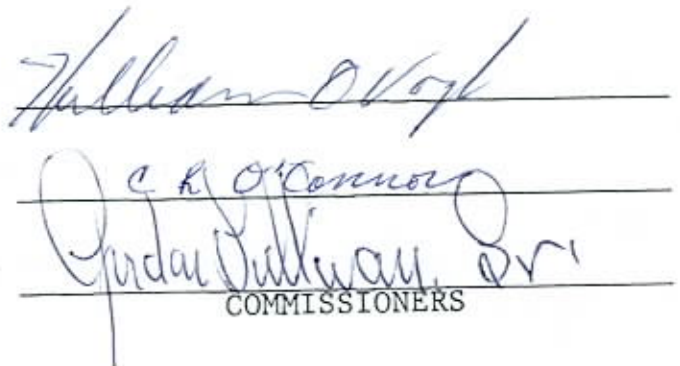 William O Vogt
C R O'Connor
Gordon Sullivan, Sr.
COMMISSIONERS